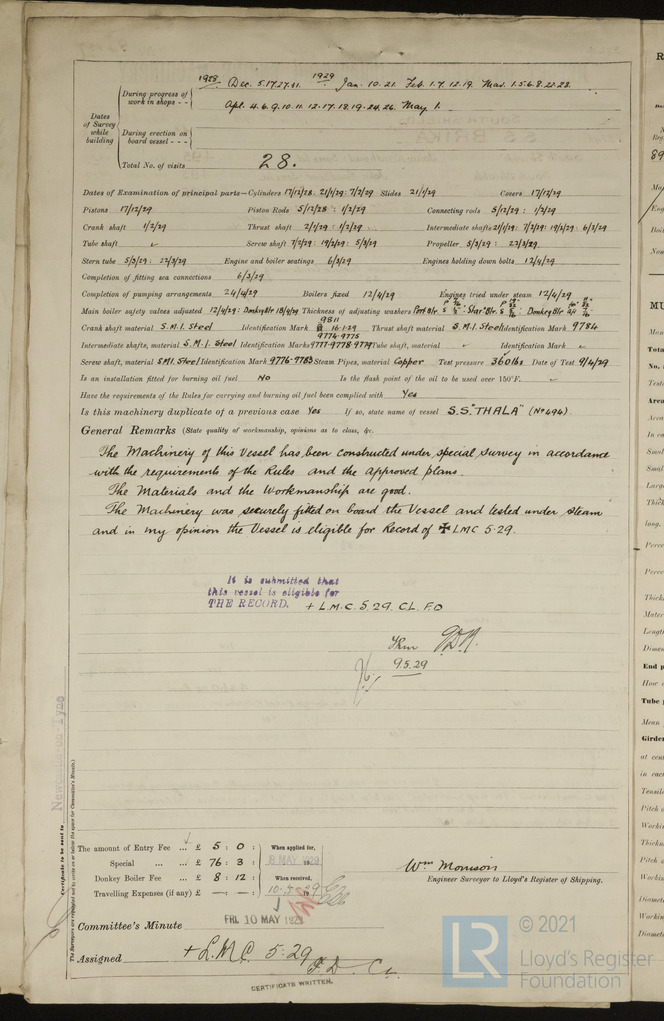 1928 Dec. 5.17.27.31. 1929 Jan. 10.21. Feb. 1.7.12.19. Mar. 1.5.6.8.22.28.
During progress of work in shops - -
Apl. 4.6.9.10.11.12.17.18.19.24.26. May 1.
Dates of Survey while building
During erection on board vessel - - -
Total No. of visits 28.
Dates of Examination of principal parts—Cylinders 17/12/28: 21/1/29: 7/2/29 Slides 21/1/29 Covers 17/12/29
Pistons 17/12/29 Piston Rods 5/12/28: 1/2/29 Connecting rods 5/12/29: 1/2/29
Crank shaft 1/2/29 Thrust shaft 2/1/29: 1/2/29 Intermediate shafts 21/1/29: 7/2/29: 19/2/29: 6/3/29
Tube shaft ✓ Screw shaft 7/2/29: 19/2/29: 5/3/29 Propeller 5/3/29: 22/3/29
Stern tube 5/3/29: 12/3/29 Engine and boiler seatings 6/3/29 Engines holding down bolts 12/4/29
Completion of fitting sea connections 6/3/29
Completion of pumping arrangements 24/4/29 Boilers fixed 12/4/29 Engines tried under steam 12/4/29
Main boiler safety valves adjusted 12/4/29: Donkey Blr 18/4/29 Thickness of adjusting washers Port Blr. Star Blr. Donkey Blr
Crank shaft material S.M.I. Steel Identification Mark 9811 16-1-29 Thrust shaft material S.M.I. Steel Identification Mark 9784
Intermediate shafts, material S.M.I. Steel Identification Marks 9774-9775 9777-9778-9779 Tube shaft, material ✓ Identification Mark ✓
Screw shaft, material SMI. Steel Identification Mark 9776-9783 Steam Pipes, material Copper Test pressure 360 lbs Date of Test 9/4/29
Is an installation fitted for burning oil fuel No Is the flash point of the oil to be used over 150°F. ✓
Have the requirements of the Rules for carrying and burning oil fuel been complied with Yes
Is this machinery duplicate of a previous case Yes If so, state name of vessel S.S. "THALA" (No 494).
General Remarks (State quality of workmanship, opinions as to class, &c.
The Machinery of this Vessel has been constructed under special survey in accordance
with the requirements of the Rules and the approved plans.
The Materials and the Workmanship are good.
The Machinery was securely fitted on board the Vessel and tested under steam
and in my opinion the Vessel is eligible for Record of ✠ LMC 5.29.
It is submitted that
this vessel is eligible for
THE RECORD. + L.M.C. 5.29. CL. F.D
9.5.29
Newcastle-on-Tyne
Certificate to be sent to
(The Surveyors are requested not to write on or below the space for Committee's Minute.)
The amount of Entry Fee ... £ 5 : 0 : When applied for,
Special ... ... £ 76 : 3 : 8 MAY 1929
Donkey Boiler Fee ... £ 8 : 12 : When received,
Travelling Expenses (if any) £ — : — : 10.5.29
Wm Morrison
Engineer Surveyor to Lloyd's Register of Shipping.
Committee's Minute FRI. 10 MAY 1929
Assigned + L.M.C. 5.29
F.D. CL.
CERTIFICATE WRITTEN.
LR © 2021
Lloyd's Register
Foundation